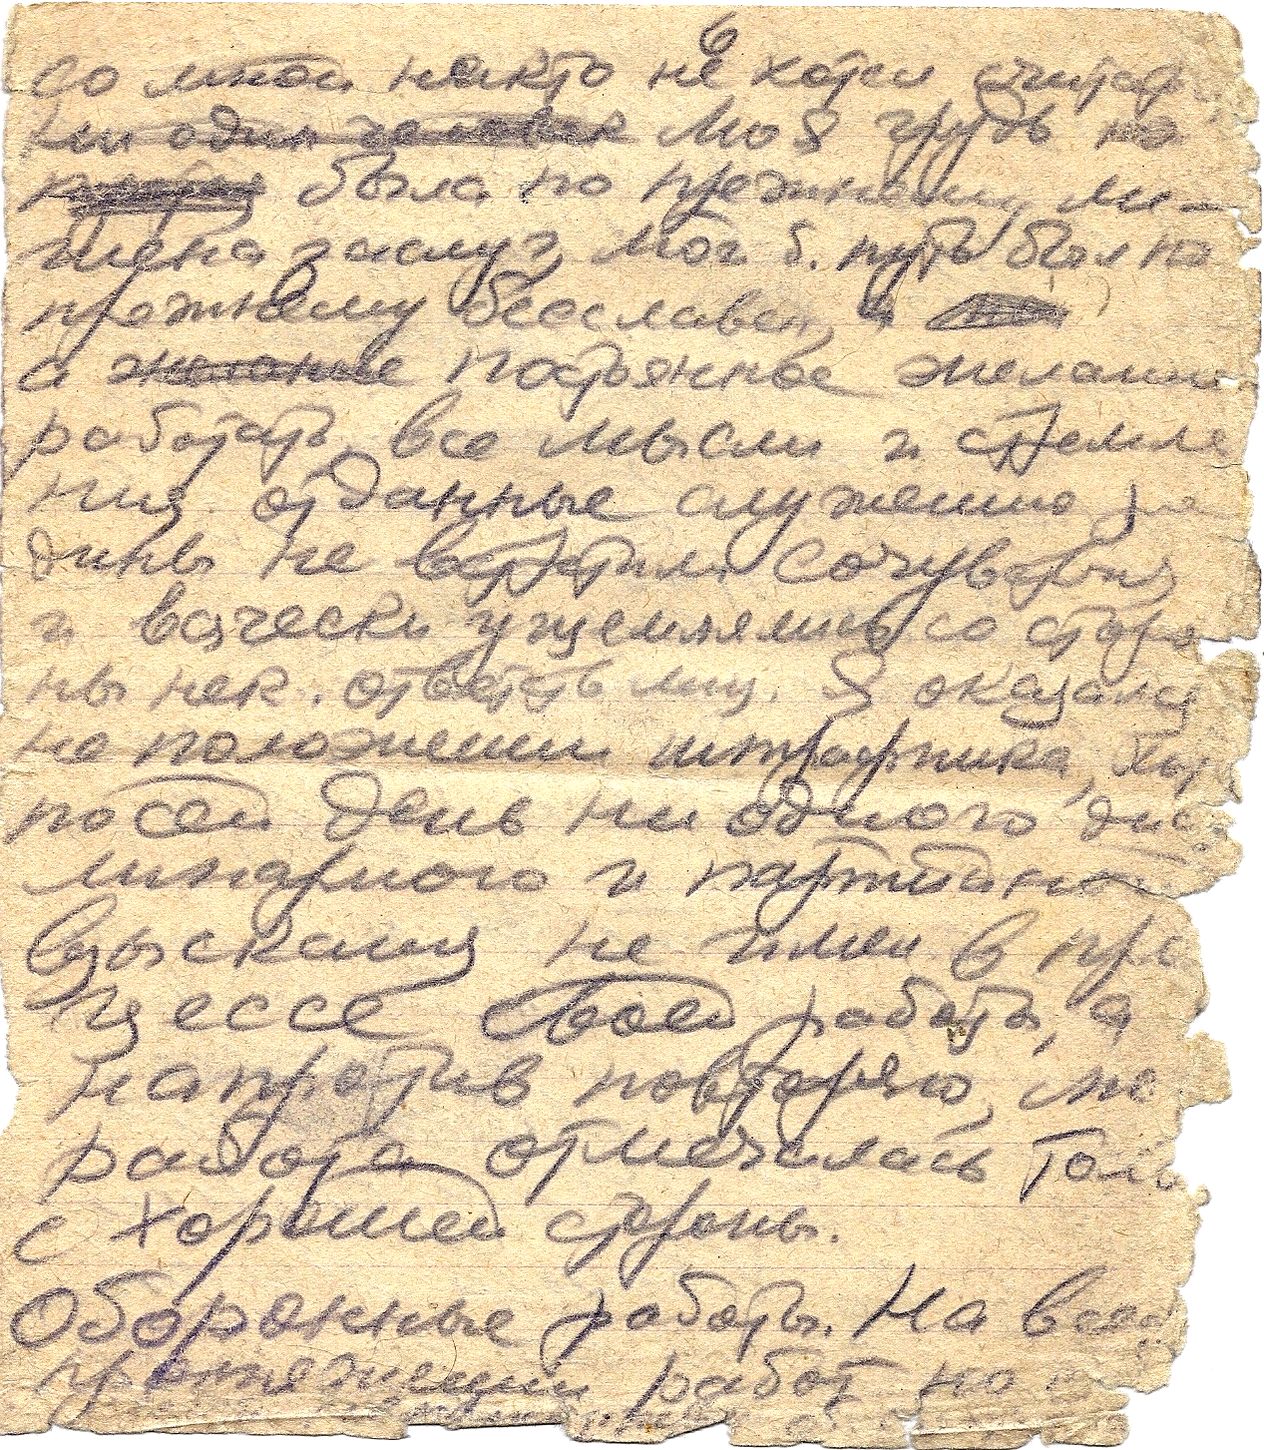 6
со мной никто не хотел считат
ни один человек Моя грудь не
была по прежнему ли-
шена заслуг, мог б. путь был по
прежнему бесславен, и
а желание постоянное желание
работать все мысли и стремле
ния отданные служению ро
дины не встретили сочувствия
и всячески ущемлялись со сторо
ны нек. ответств лиц. Я оказался
на положении штрафника, хотя
по сей день ни одного дис
линарного и партийно
взыскания не имел в про
цессе своей работы, а
напротив повторяю, мо
работа отмечалась толь
с хорошей стороны.
Оборонные работы. На всем
протяжении работ по